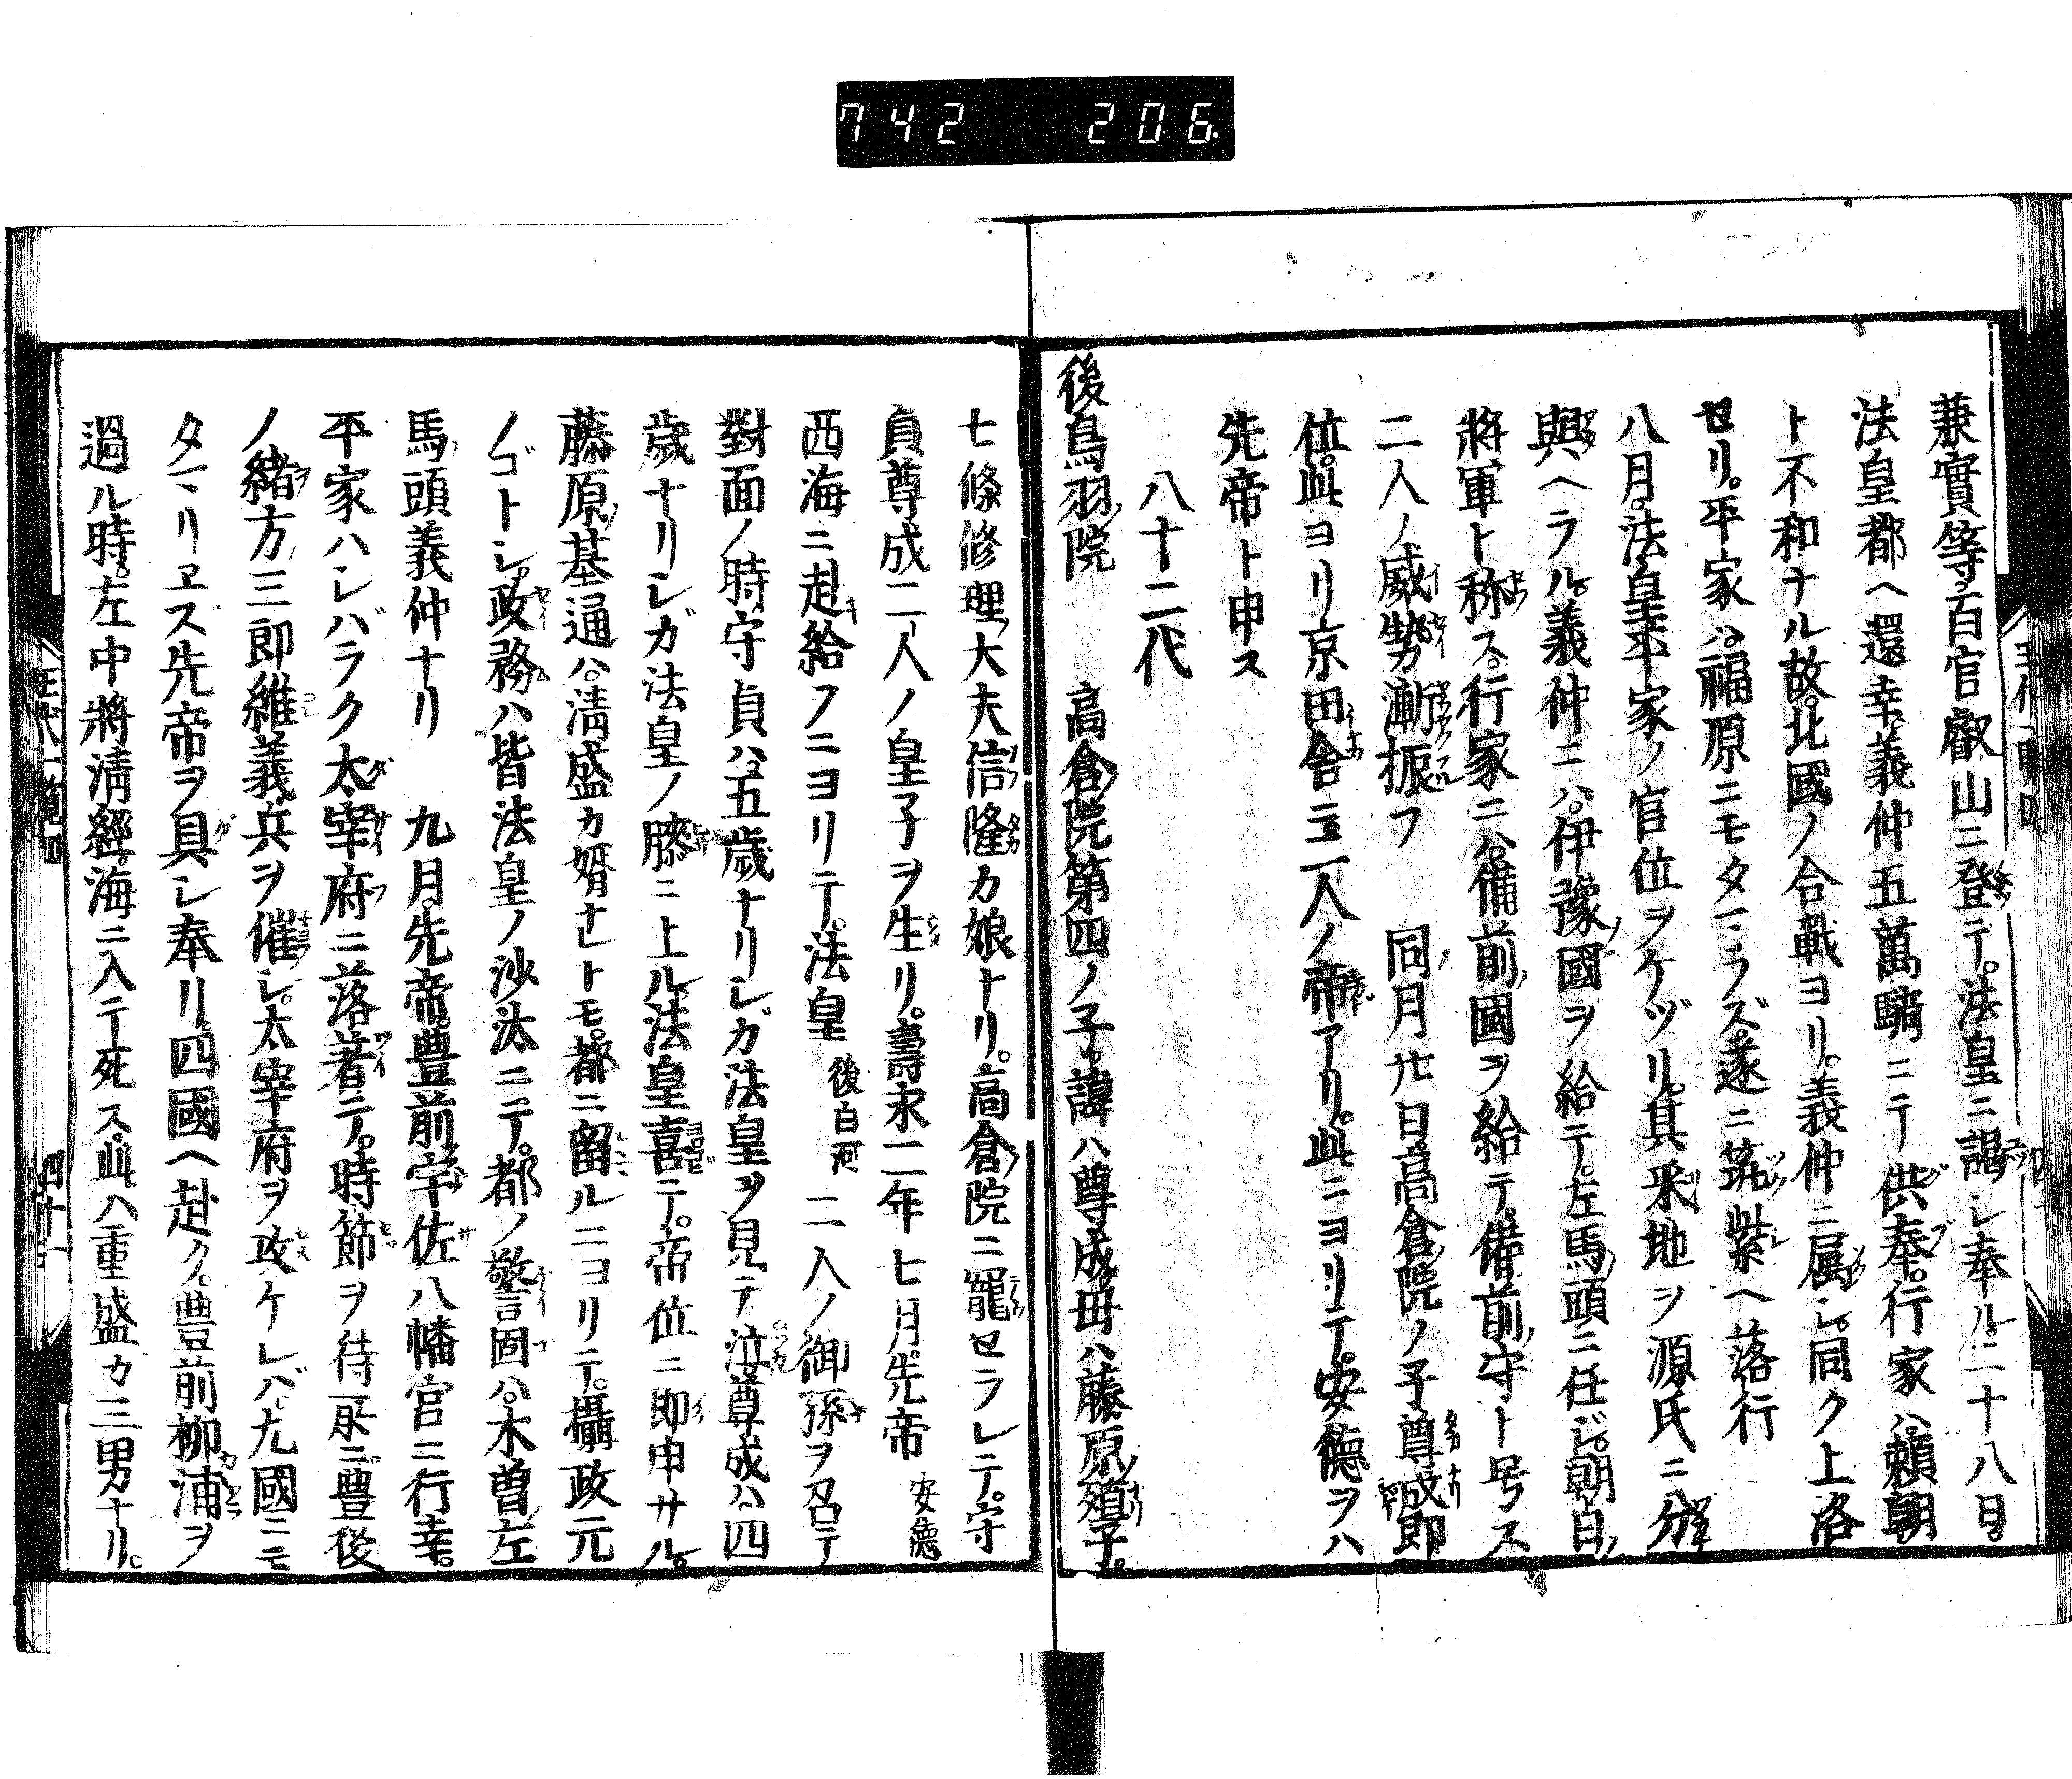 742 206.
兼實等百官叡山ニ登テ。法皇ニ謁シ奉ル。二十八日。
法皇都ヘ還幸。義仲五萬騎ニテ供奉。行家ハ。頼朝
ト不和ナル故。北國ノ合戰ヨリ。義仲ニ属シ。同ク上洛
セリ。平家ハ。福原ニモタマラズ。遂ニ筑紫ヘ落行
八月。法皇平家ノ官位ヲケヅリ。其釆地ヲ源氏ニ分
與ヘラル。義仲ニハ。伊豫國ヲ給テ。左馬頭ニ任ジ。朝日
將軍ト称ス。行家ニハ。備前國ヲ給テ。備前守ト号ス
二人ノ威勢漸振フ 同月廿日。高倉院ノ子尊成即
位。此ヨリ京田舍ニ二人ノ帝アリ。此ニヨリテ。安德ヲハ
先帝ト申ス
八十二代
後鳥羽院 高倉院第四ノ子。諱ハ尊成。母ハ藤原殖子。
七條修理大夫信隆カ娘ナリ。高倉院ニ寵セラレテ。守
貞尊成二人ノ皇子ヲ生リ。壽永二年七月。先帝安德
西海ニ赴給フニヨリテ。法皇後白河二人ノ御孫ヲ召テ
對面ノ時。守貞ハ。五歲ナリシガ法皇ヲ見テ泣。尊成ハ。四
歲ナリシガ法皇ノ膝ニ上ル。法皇喜テ。帝位ニ即申サル。
藤原基通ハ。淸盛カ婿ナレトモ。都ニ留ルニヨリテ。攝政元
ノゴトシ。政務ハ皆法皇ノ沙汰ニテ。都ノ警固ハ。木曽左
馬頭義仲ナリ 九月。先帝。豊前宇佐八幡宮ニ行幸。
平家ハシバラク太宰府ニ落着テ。時節ヲ待所ニ。豊後
ノ緒方三郎維義兵ヲ催シ。太宰府ヲ攻ケレバ。九國ニモ
タマリヱズ先帝ヲ具シ奉リ。四國ヘ赴ク。豊前柳浦ヲ
過ル時。左中將淸經海ニ入テ死ス。此ハ重盛カ三男ナリ。